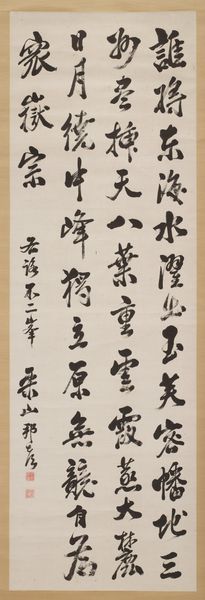 誰將東海水濯出玉芙容蟠地三
州尽插天八葉重雲霞蒸大麓
日月繞中峰獨立原無競自為
衆嶽宗
右詠不二峯 栗山邦彦